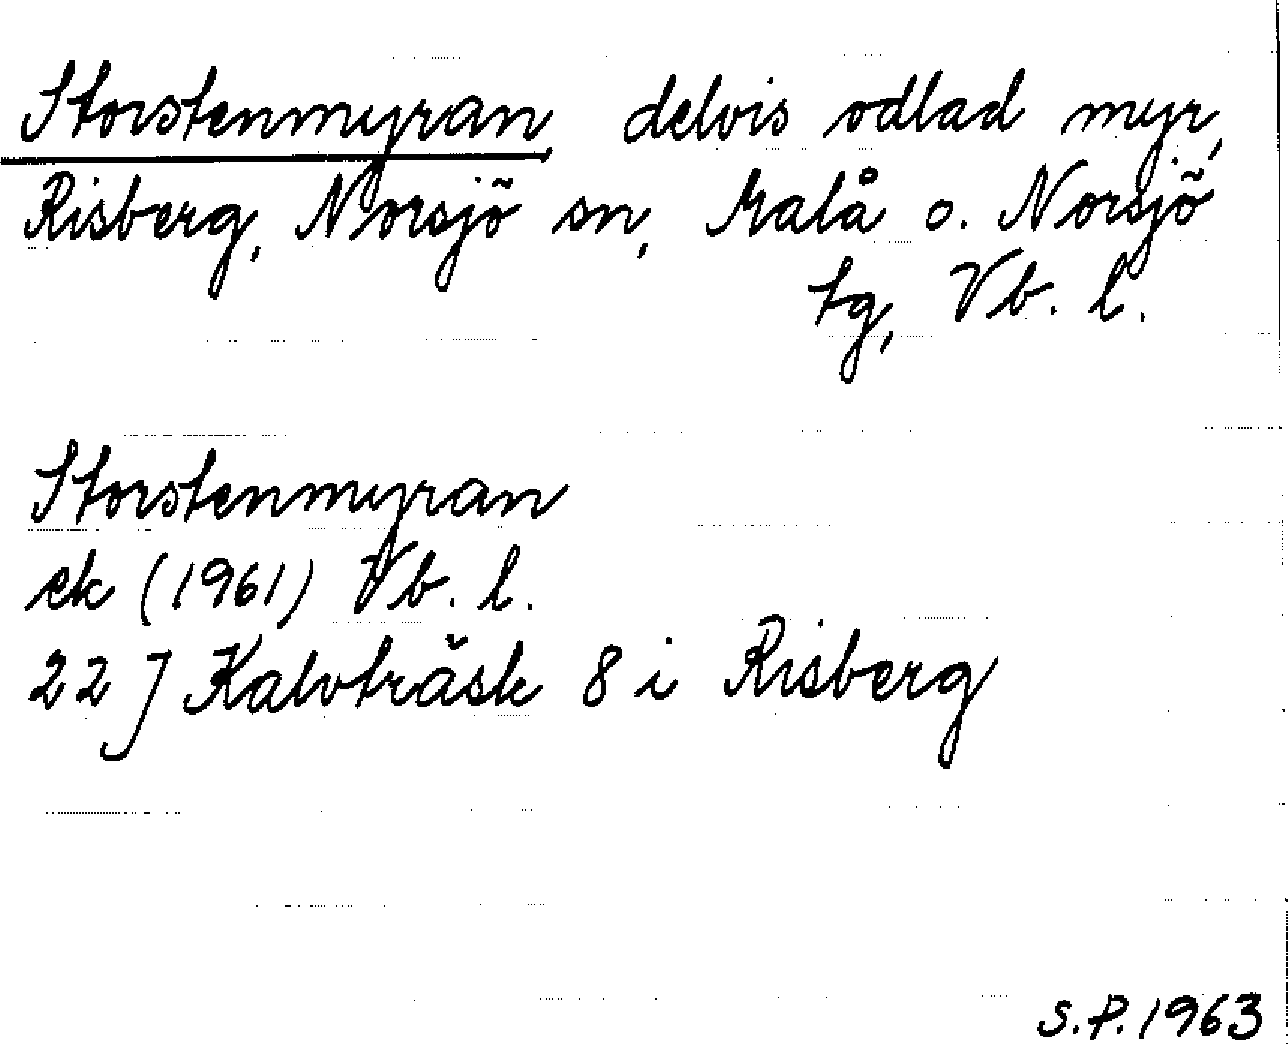 Storstenmyran, delvis odlad myr,
Risberg, Norsjö sn, Malå o. Norsjö
tg, Vb. l.
Storstenmyran
ek (1961) Vb. l.
22 J Kalvträsk 8 i Risberg
S.P. 1963